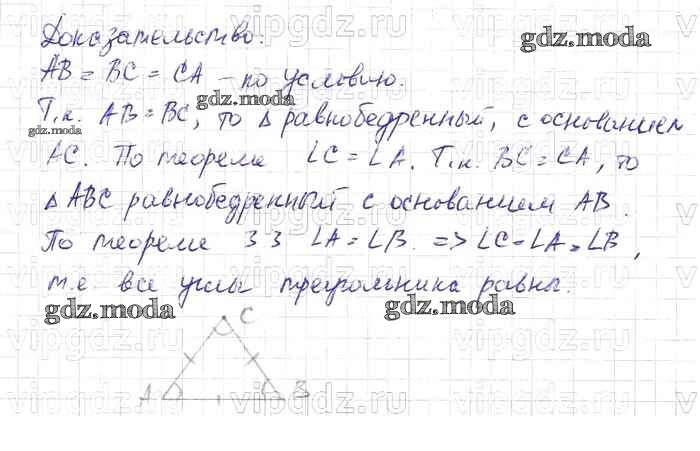 Доказательство.
gdz.moda
AB = BC = CA – по условию.
gdz.moda
Т.к. AB = BC, то Δ равнобедренный, с основанием
gdz.moda
AC. По теореме ∠C = ∠A. Т.к. BC = CA, то
Δ ABC равнобедренный с основанием AB.
По теореме 3 3 ∠A = ∠B. => ∠C = ∠A = ∠B,
т.е. все углы треугольника равны.
gdz.moda
gdz.moda
C
A B
vipgdz.ru